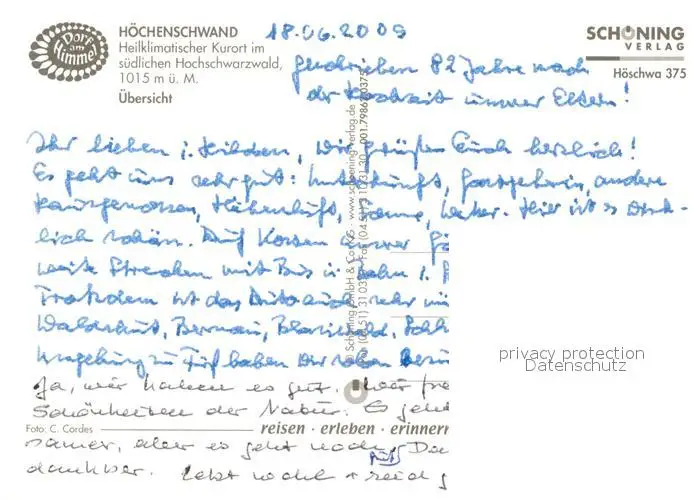 Dorf am Himmel
HÖCHENSCHWAND
Heilklimatischer Kurort im
südlichen Hochschwarzwald,
1015 m ü. M.
Übersicht
18.06.2009
SCHÖNING
VERLAG
Höschwa 375
geschrieben 82 Jahre nach
der Hochzeit unserer Eltern!
Ihr lieben i. Hilden, wir grüßen Euch herzlich!
Es geht uns sehr gut: Unterkunft, Gastgeberin, andere
Hausgenossen, Höhenluft, Sonne, Wetter. Hier ist es
lich schön. Auf Kosten unserer
weite Strecken mit Bus u. Bahn
Trotzdem ist das Auto auch sehr
Waldshut, Bernau, Blasiwald,
Umgebung zu Fuß haben wir schon
Ja, wir haben es gut. Wir
Schönheiten der Natur. Es geht
Foto: C. Cordes
reisen · erleben · erinnern
samer, aber es geht noch. Da
dankbar. Lebt wohl + seid
© Schöning GmbH & Co. KG · www.schoening-verlag.de
privacy protection
Datenschutz